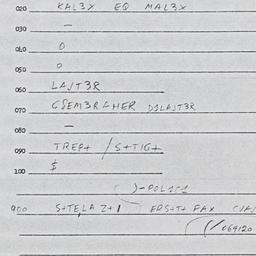 020 KAL3X EQ MAL3X
030 —
040 0
050 0
060 LAJT3R
070 GSEM3RAHER D1LAJT3R
080 —
090 TREP+ / S+TIG+
100 $
( )-POL1C1
900 S+TELA Z+1 FAX
069120